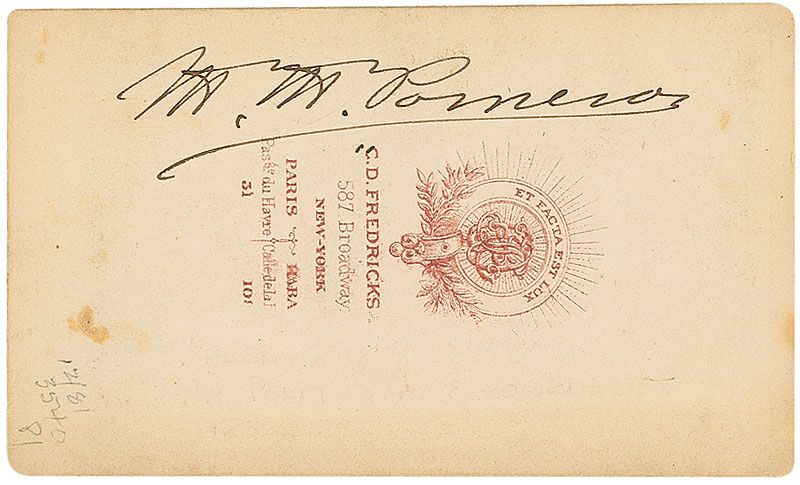 M. M. Pomeroy
ET FACTA EST LUX
C. D. FREDRICKS
587 Broadway
NEW-YORK
PARIS HABA
Pasge. du Havre Calle de la
31 108
12/81
3540
81